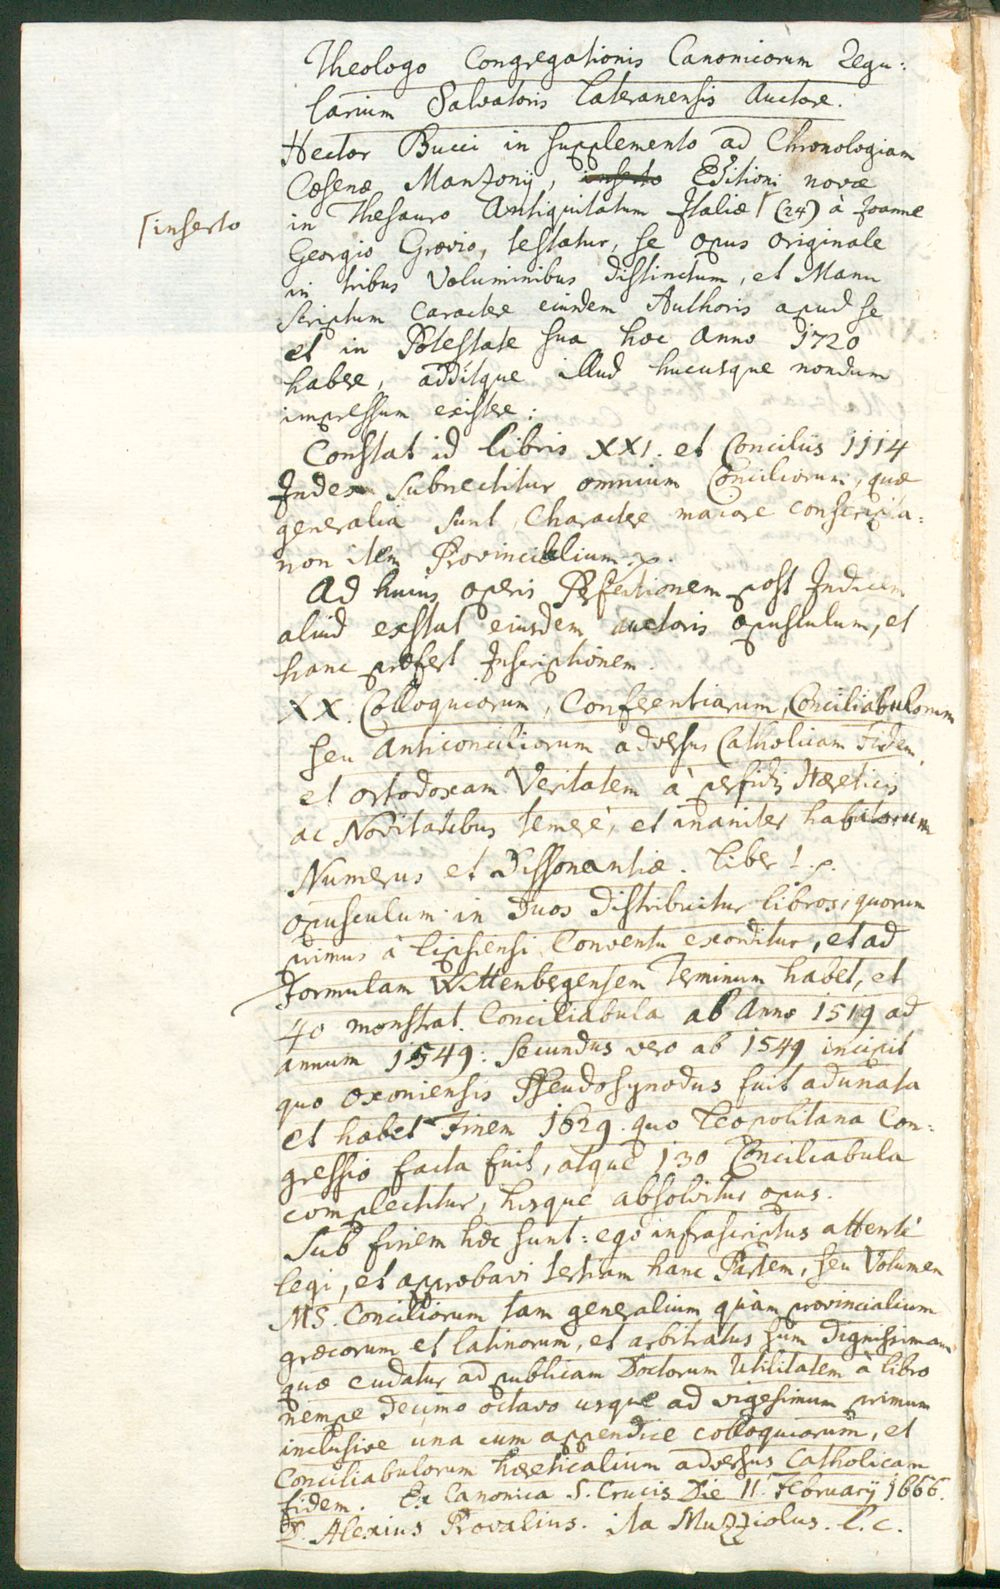 Theologo Congregationis Canonicorum Regu:
larium Salvatoris Lateranensis Auctore.
Hector Bucci in supplemento ad Chronologiam
Cæsenæ Manzonij, inserto Editioni novæ
in Thesauro Antiquitatum Italiæ ⌈ (24) à Joanne
⌈inserto
Georgio Grævio, testatur, se opus originale
in tribus Voluminibus distinctum, et Manu
scriptum caractere eiusdem Authoris apud se
et in Potestate sua hoc Anno 1720
habere, additque illud hucusque nondum
impressum existere:
Constat id libris XXI. et Conciliis 1114
Index subnectitur omnium Conciliorum, quæ
generalia sunt, Charactere maiore conscripta:
non item Provincialium
Ad huius operis Perfectionem post Indicem
aliud exstat eiusdem auctoris opusculum, et
hanc præfert Inscriptionem.
XX. Colloquiorum, Conferentiarum, Conciliabulorum
seu Anticonciliorum adversus Catholicam Fidem,
et ortodoxam Veritatem à perfidis Hæreticis
ac Novitatibus temerè, et inaniter habitorum
Numerus et Dissonantiæ. Liber 1. p.
opusculum in duos distribuitur libros, quorum
primus à Lipsiensi Conventu exorditur, et ad
Formulam Wittenbergensem Terminum habet, et
40 monstrat Conciliabula ab Anno 1519 ad
annum 1549: secundus vero ab 1549 incipit
quo Oxoniensis Pseudosynodus fuit adunata
et habet Finem 1629. quo Leopolitana Con:
gressio facta fuit, atque 130 Conciliabula
complectitur, hisque absolvitur opus.
Sub finem hæc sunt: ego infrascriptus attentè
legi, et approbavi tertiam hanc Partem, seu Volumen
MS. Conciliorum tam generalium quàm provincialium
græcorum et latinorum, et arbitratus sum dignissimam
quæ cudatur ad publicam Doctorum Utilitatem à libro
nempe decimo octavo usque ad vigesimum primum
inclusive una cum appendice colloquiorum, et
Conciliabulorum hæreticalium adversus Catholicam
fidem. Ex Canonica S. Crucis Die 11. February 1666.
D. Alexius Provalius. Ita Muzziolus. l. c.